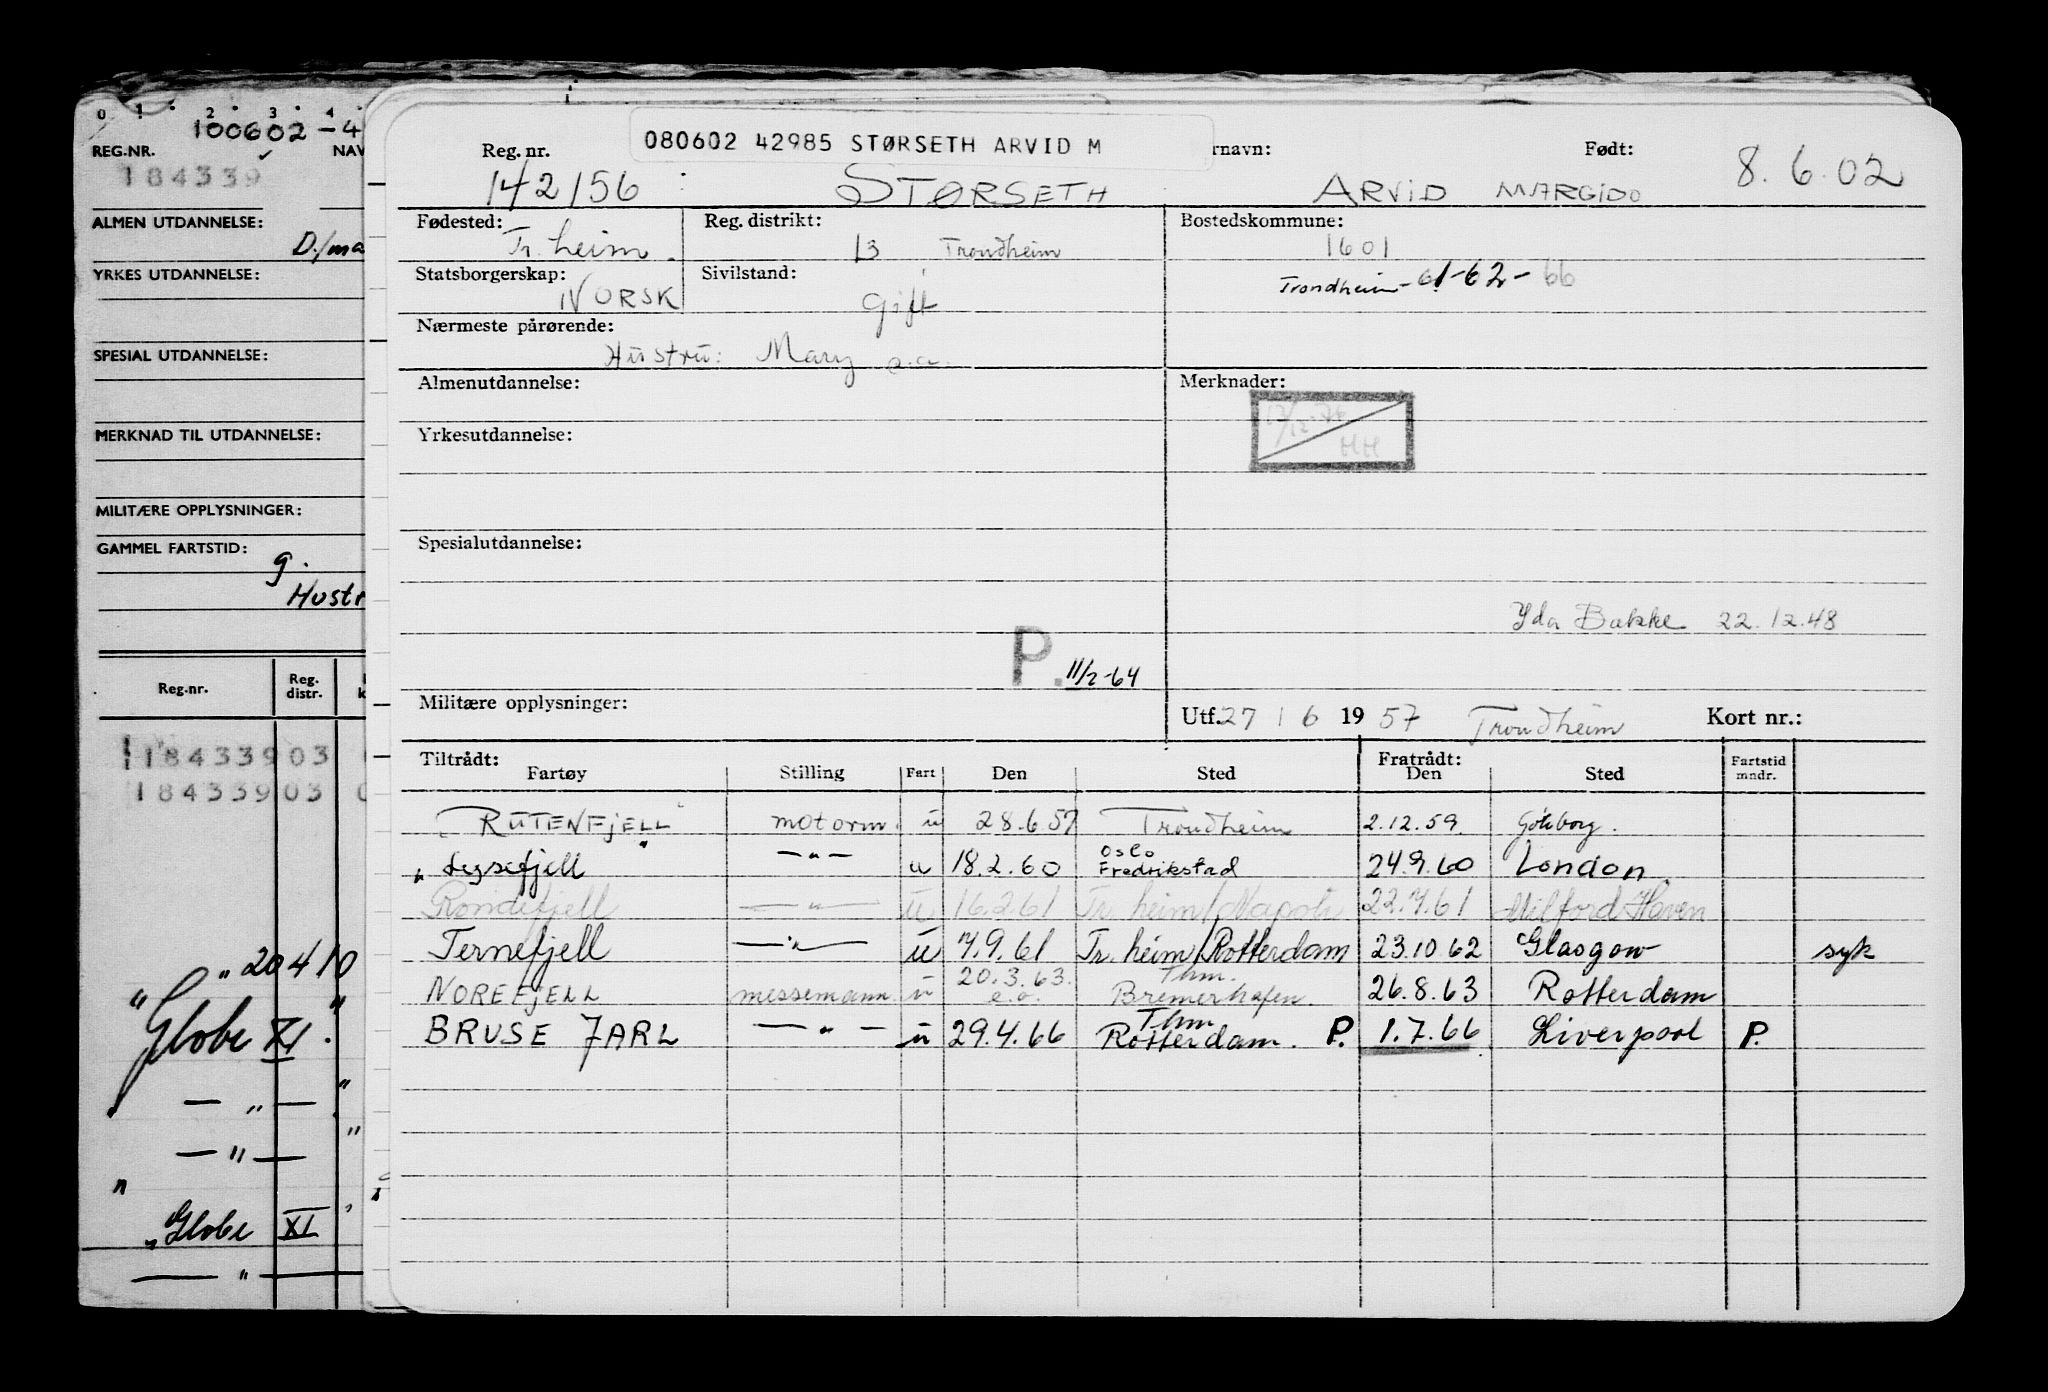 0 1 2 3 4
100602-4
REG.NR. NAV
184339
ALMEN UTDANNELSE:
D./ma
YRKES UTDANNELSE:
SPESIAL UTDANNELSE:
MERKNAD TIL UTDANNELSE:
MILITÆRE OPPLYSNINGER:
GAMMEL FARTSTID:
g.
Hustr
Reg.nr. Reg. distr. k
118433903
18433903
" 20410
"Globe XI."
— " —
— " —
"Globe XI
— " —
080602 42985 STØRSETH ARVID M
Reg. nr. rnavn: Født:
142156 STØRSETH ARVID MARGIDO 8.6.02
Fødested: Reg. distrikt: Bostedskommune:
Tr.heim. 13 Trondheim 1601
Statsborgerskap: Sivilstand: Trondheim-61-62-66
NORSK Gift
Nærmeste pårørende:
Hustru: Mary s.a.
Almenutdannelse: Merknader:
13/12-76
HH
Yrkesutdannelse:
Spesialutdannelse:
Yda Bakke 22.12.48
P. 11/2-64
Militære opplysninger: Utf. 27/6 1957 Trondheim Kort nr.:
Tiltrådt: Fratrådt:
Fartøy Stilling Fart Den Sted Den Sted Fartstid mndr.
"RUTENFJELL" motorm. u 28.6.57 Trondheim 2.12.59. Göteborg.
"Lysefjell" —"— u 18.2.60 Oslo Fredrikstad 24.9.60 London.
Rondefjell —"— u 16.2.61 Tr.heim/Napoli 22.7.61 Milford Haven
Ternefjell —"— u 7.9.61 Tr.heim/Rotterdam 23.10.62 Glasgow syk
NOREFJELL messemann. u 20.3.63. e.o. Thm. Bremerhafen. 26.8.63 Rotterdam
BRUSE JARL —"— u 29.4.66 Thm Rotterdam. P. 1.7.66 Liverpool P.